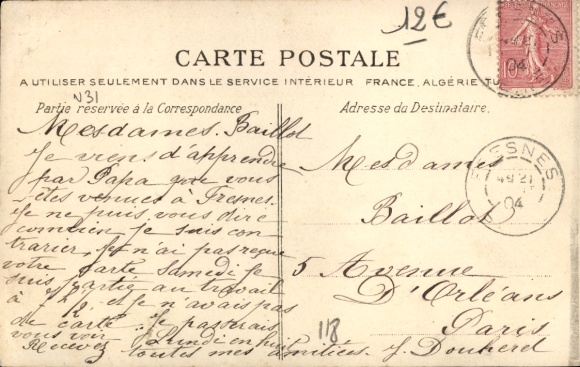 12€
CARTE POSTALE
A UTILISER SEULEMENT DANS LE SERVICE INTÉRIEUR FRANCE, ALGÉRIE
N31
Partie réservée à la Correspondance
Mesdames. Baillot
Je viens d'apprendre
par Papa que vous
êtes venues à Fresnes.
Je ne puis vous dire
combien je suis con
trarier, je n'ai pas reçue
votre carte Samedi je
suis partie au travail
à et je n'avais pas
de carte. Je passerais
vous voir Lundi en
Recevez toutes mes amitiées. J. Douherel
Adresse du Destinataire.
Mesdames
Baillot
5 Avenue
D'Orléans
Paris
118
FRESNES
04
10
FRESNES
04